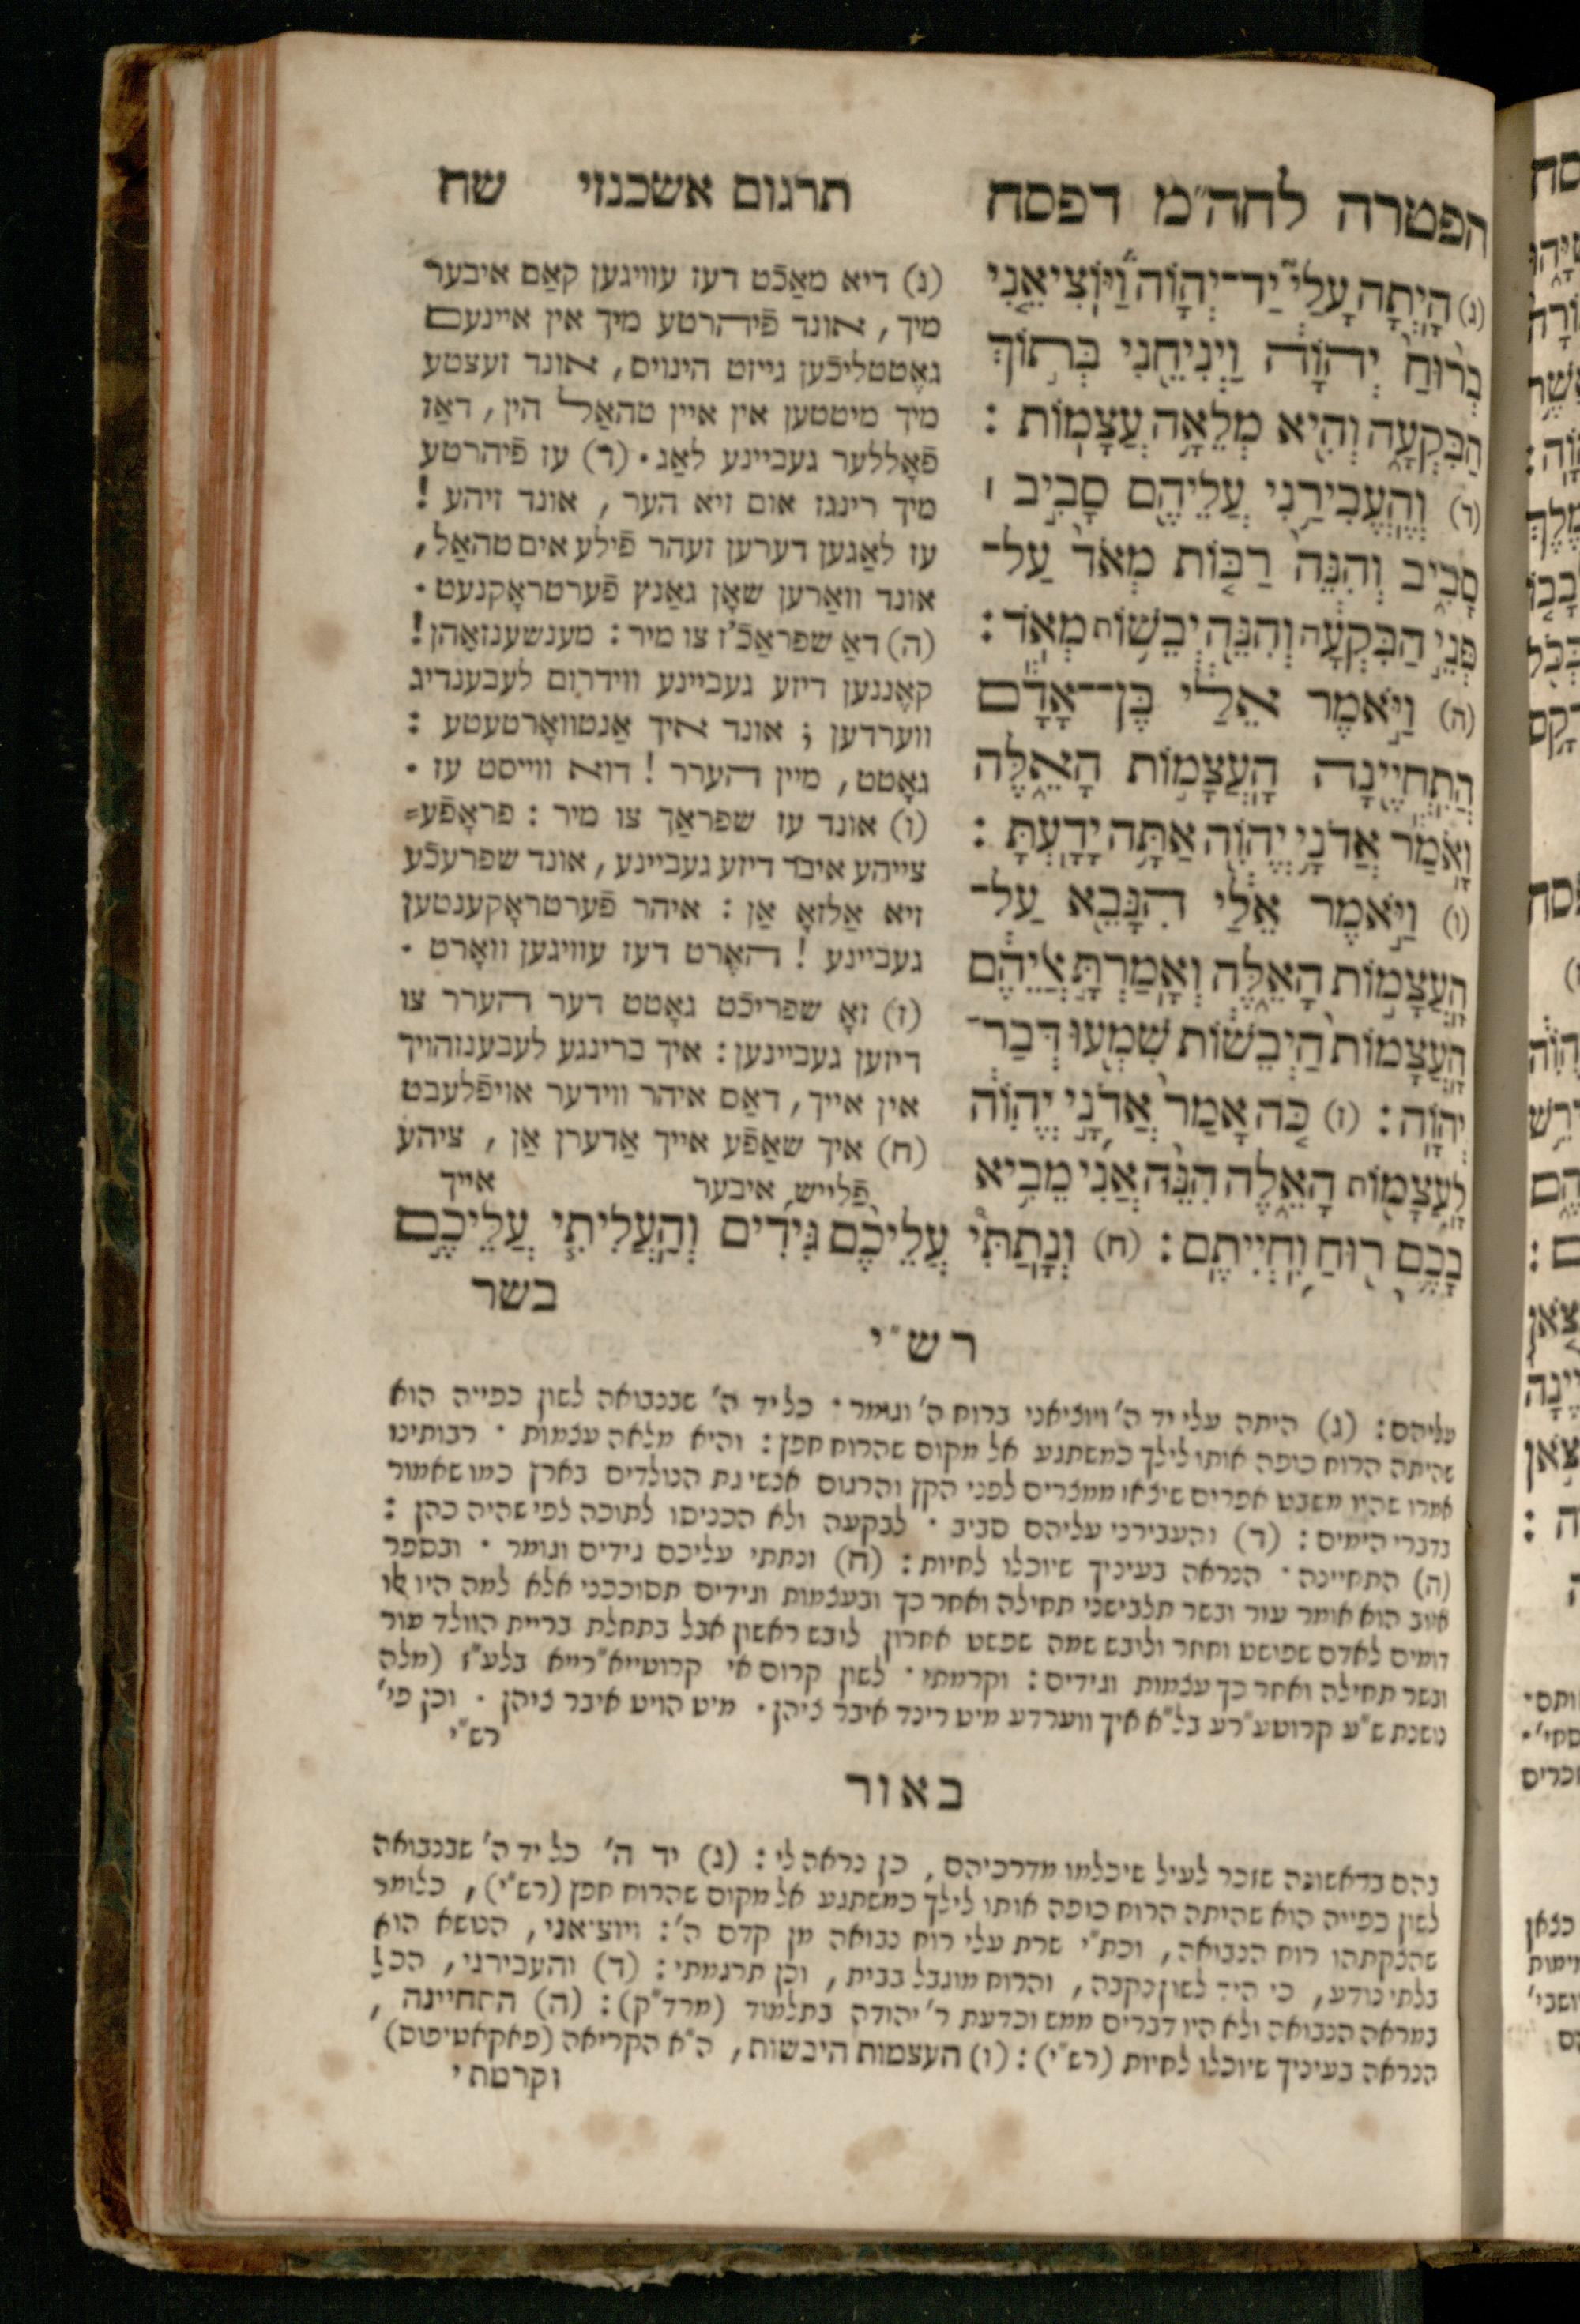 הפטרה לחה״מ דפסח
תרגום אשכנזי שח
(ג) הָיְתָה עָלַי יַד־יְהֹוָה וַיּוֹצִיאֵנִי
בְרוּחַ יְהֹוָה וַיְנִיחֵנִי בְּתוֹךְ
הַבִּקְעָה וְהִיא מְלֵאָה עֲצָמוֹת :
(ד) וְהֶעֱבִירַנִי עֲלֵיהֶם סָבִיב ׀
סָבִיב וְהִנֵּה רַבּוֹת מְאֹד עַל־
פְּנֵי הַבִּקְעָה וְהִנֵּה יְבֵשׁוֹת מְאֹד :
(ה) וַיֹּאמֶר אֵלַי בֶּן־אָדָם
הֲתִחְיֶינָה הָעֲצָמוֹת הָאֵלֶּה
וָאֹמַר אֲדֹנָי יֱהֹוִה אַתָּה יָדָעְתָּ :
(ו) וַיֹּאמֶר אֵלַי הִנָּבֵא עַל־
הָעֲצָמוֹת הָאֵלֶּה וְאָמַרְתָּ אֲלֵיהֶם
הָעֲצָמוֹת הַיְבֵשׁוֹת שִׁמְעוּ דְּבַר־
יְהֹוָה : (ז) כֹּה אָמַר אֲדֹנָי יֱהֹוִה
לָעֲצָמוֹת הָאֵלֶּה הִנֵּה אֲנִי מֵבִיא
בָכֶם רוּחַ וִחְיִיתֶם : (ח) וְנָתַתִּי עֲלֵיכֶם גִּידִים וְהַעֲלֵיתִי עֲלֵיכֶם
בשר
(ג) דיא מאַכֿט דעז עוויגען קאַם איבער
מיך, אונד פֿיהרטע מיך אין איינעם
גאָטטליכֿען גייזט הינויס, אונד זעצטע
מיך מיטטען אין איין טהאַל הין, דאַז
פֿאָללער געביינע לאַג. (ד) עז פֿיהרטע
מיך רינגז אום זיא הער, אונד זיהע !
עז לאַגען דערען זעהר פֿילע אים טהאַל,
אונד וואַרען שאָן גאַנץ פֿערטראָקנעט.
(ה) דאַ שפראַכֿ'ז צו מיר : מענשענזאָהן !
קאָננען דיזע געביינע ווידרום לעבענדיג
ווערדען ; אונד איך אַנטוואָרטעטע :
גאָטט, מיין הערר ! דוא ווייסט עז .
(ו) אונד עז שפראַך צו מיר : פראָפֿע=
צייהע איבר דיזע געביינע, אונד שפרעכֿע
זיא אַלזאָ אַן : איהר פֿערטראָקענטען
געביינע ! האָרט דעז עוויגען וואָרט .
(ז) זאָ שפריכֿט גאָטט דער הערר צו
דיזען געביינען : איך ברינגע לעבענזהויך
אין אייך, דאַס איהר ווידער אויפֿלעבט
(ח) איך שאַפֿע אייך אַדערן אַן, ציהע
פֿלייש, איבער אייך
רש״י
עליהם : (ג) היתה עלי יד ה' ויוציאני ברוח ה' וגומר . כל יד ה' שבנבואה לשון כפייה הוא
שהיתה הרוח כופה אותו לילך כמשתגע אל מקום שהרוח חפץ : והיא מלאה עצמות . רבותינו
אמרו שהיו משבט אפרים שיצאו ממצרים לפני הקץ והרגום אנשי גת הנולדים בארץ כמו שאמור
בדברי הימים : (ד) והעבירני עליהם סביב . לבקעה ולא הכניסו לתוכה לפי שהיה כהן :
(ה) התחיינה . הנראה בעיניך שיוכלו לחיות : (ח) ונתתי עליכם גידים וגומר . ובספר
איוב הוא אומר עור ובשר תלבישני תחילה ואחר כך ובעצמות וגידים תסוככני אלא למה היו
דומים לאדם שפושט וחוזר ולובש שמה שפשט אחרון לובש ראשון אבל בתחלת בריית הוולד עור
ובשר תחילה ואחר כך עצמות וגידים : וקרמתי . לשון קרום אי קרוטייא״רייא בלע״ז (מלה
ש״ע קרוטע״רע בל״א איך ווערדע מיט רינד איבר ציהן . מיט הויט איבר ציהן . וכן פי'
רש״י
באור
בהם בראשונה שזכר לעיל שיכלמו מדרכיהם, כן נראה לי : (ג) יד ה' כל יד ה' שבנבואה
לשון כפייה הוא שהיתה הרוח כופה אותו לילך כמשתגע אל מקום שהרוח חפץ (רש״י), כלומר
שהכקתהו רוח הנבואה, וכת״י שרת עלי רוח נבואה מן קדם ה' : ויוציאני, הנושא הוא
בלתי נודע, כי היד לשון נקבה, והרוח מוגבל בבית, וכן תרגמתי : (ד) והעבירני, הכל
במראה הנבואה ולא היו דברים ממש וכדעת ר' יהודה בתלמוד (מרד״ק) : (ה) התחיינה,
הנראה בעיניך שיוכלו לחיות (רש״י) : (ו) העצמות היבשות, ה״א הקריאה (פאקאטיפוס)
וקרמתי